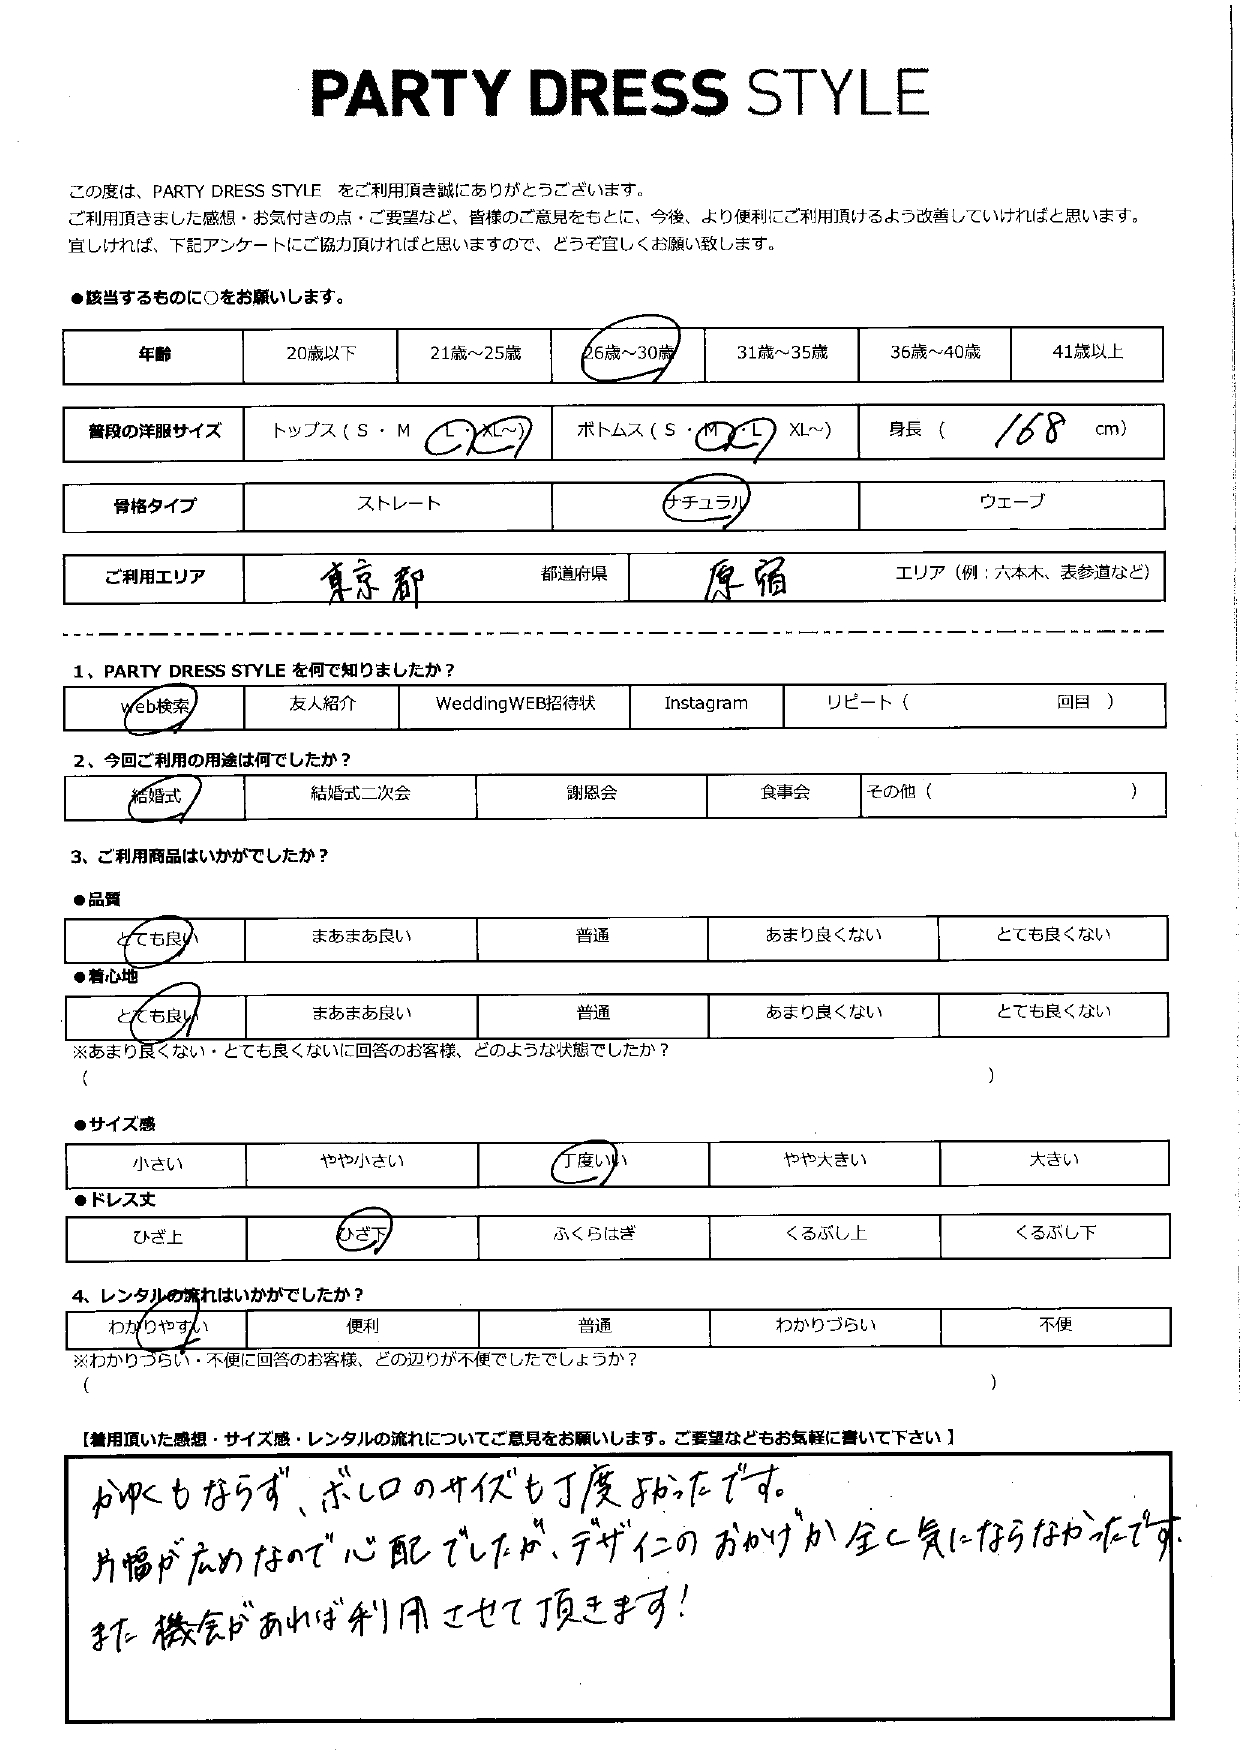 PARTY DRESS STYLE
この度は、PARTY DRESS STYLE をご利用頂き誠にありがとうございます。
ご利用頂きました感想・お気付きの点・ご要望など、皆様のご意見をもとに、今後、より便利にご利用頂けるよう改善していければと思います。
宜しければ、下記アンケートにご協力頂ければと思いますので、どうぞ宜しくお願い致します。
●該当するものに○をお願いします。
年齢 20歳以下 21歳～25歳 26歳～30歳 31歳～35歳 36歳～40歳 41歳以上
普段の洋服サイズ トップス ( S ・ M ・ L ・ XL～) ボトムス ( S ・ M ・ L ・ XL～) 身長 ( 168 cm)
骨格タイプ ストレート ナチュラル ウェーブ
ご利用エリア 東京都 都道府県 原宿 エリア（例：六本木、表参道など）
1、PARTY DRESS STYLE を何で知りましたか？
Web検索 友人紹介 WeddingWEB招待状 Instagram リピート（ 回目 ）
2、今回ご利用の用途は何でしたか？
結婚式 結婚式二次会 謝恩会 食事会 その他（ ）
3、ご利用商品はいかがでしたか？
●品質
とても良い まあまあ良い 普通 あまり良くない とても良くない
●着心地
とても良い まあまあ良い 普通 あまり良くない とても良くない
※あまり良くない・とても良くないに回答のお客様、どのような状態でしたか？
( )
●サイズ感
小さい やや小さい 丁度いい やや大きい 大きい
●ドレス丈
ひざ上 ひざ下 ふくらはぎ くるぶし上 くるぶし下
4、レンタルの流れはいかがでしたか？
わかりやすい 便利 普通 わかりづらい 不便
※わかりづらい・不便に回答のお客様、どの辺りが不便でしたでしょうか？
( )
【着用頂いた感想・サイズ感・レンタルの流れについてご意見をお願いします。ご要望などもお気軽に書いて下さい】
かゆくもならず、ボレロのサイズも丁度よかったです。
片幅が広めなので心配でしたが、デザインのおかげか全く気にならなかったです.
また機会があれば利用させて頂きます!